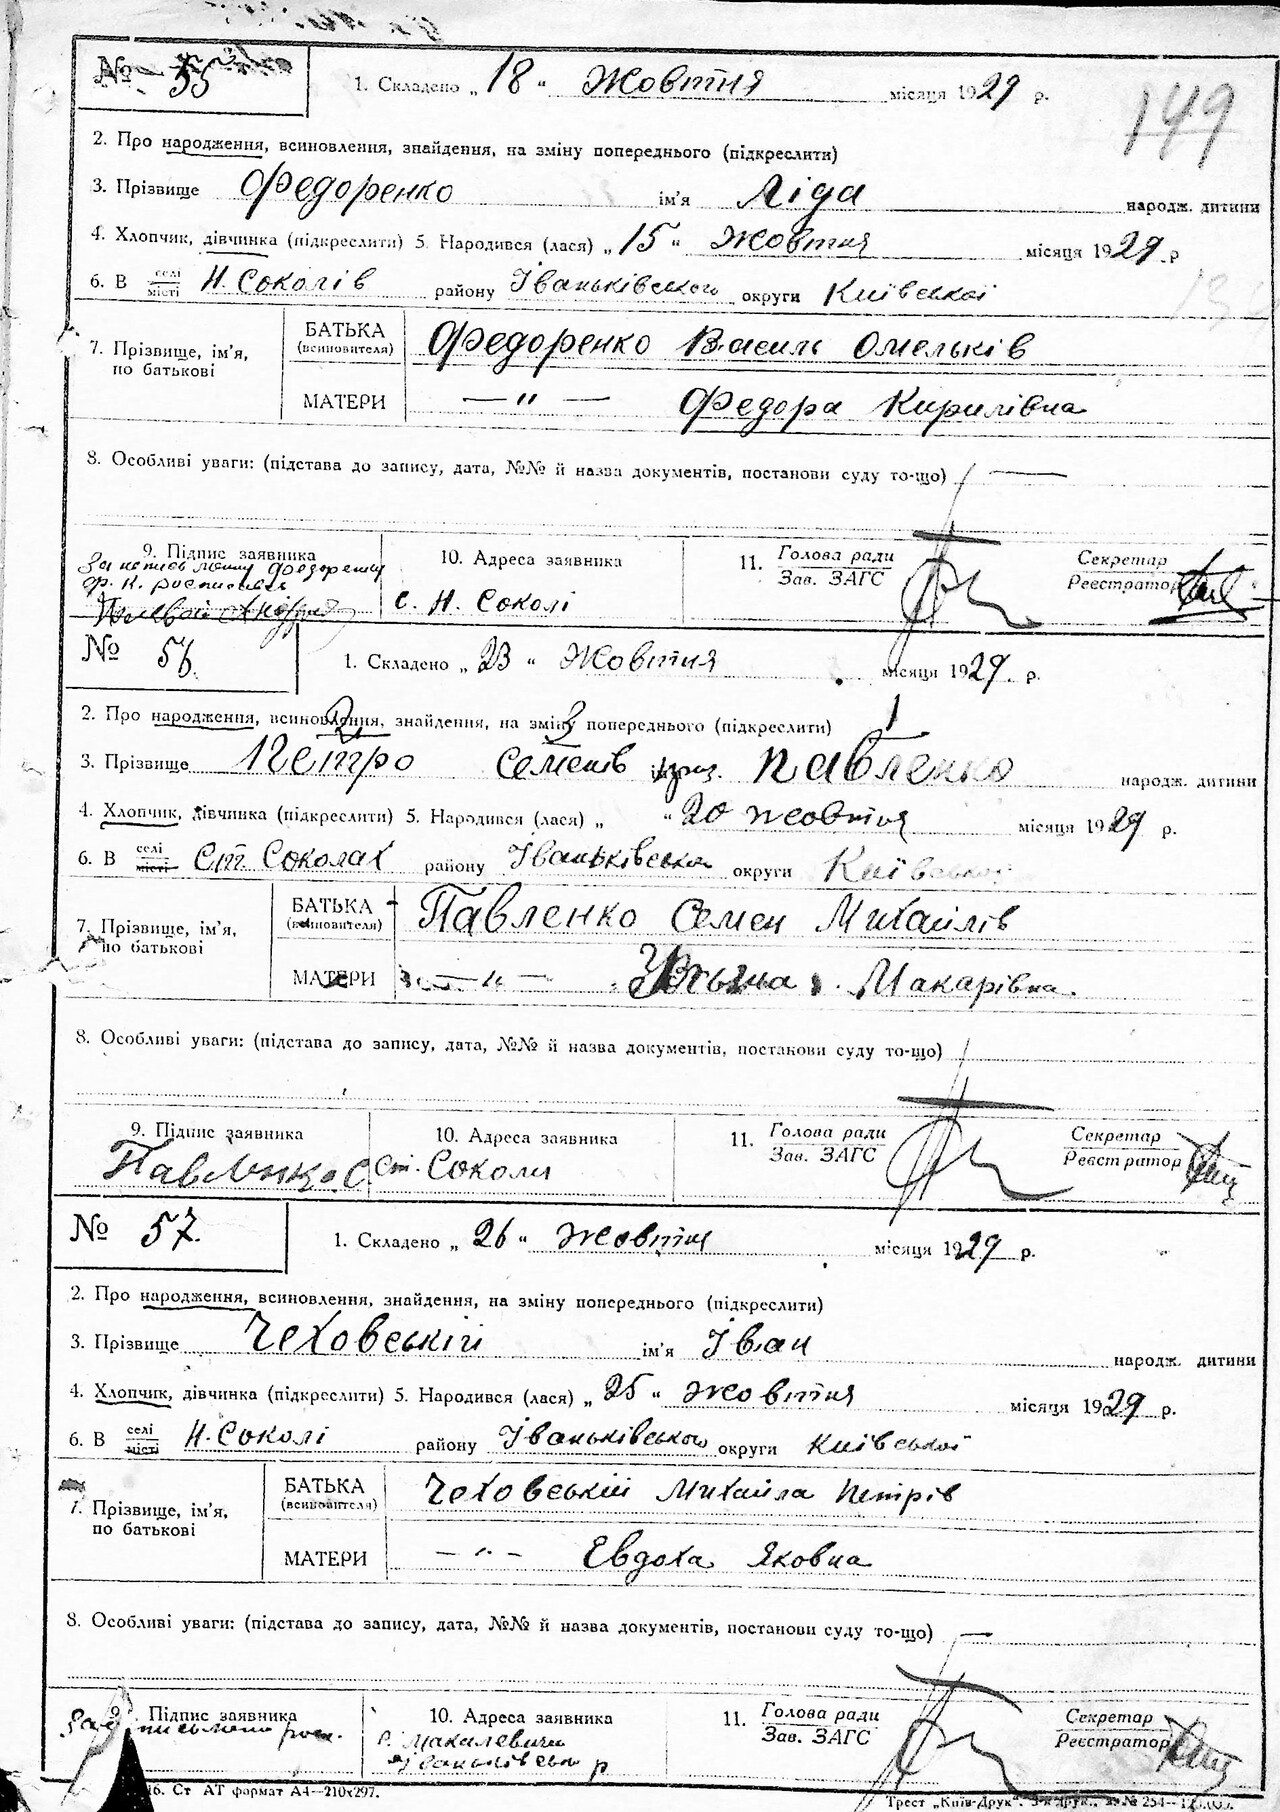 № 55
1. Складено „ 18 “ Жовтня місяця 1929 р.
149
2. Про народження, всиновлення, знайдення, на зміну попереднього (підкреслити)
3. Прізвище Федоренко ім'я Ліда народж. дитини
4. Хлопчик, дівчинка (підкреслити) 5. Народився (лася) „ 15 “ Жовтня місяця 1929 р
6. В селі місті Н. Соколів району Іваньківського округи Київської
7. Прізвище, ім'я, по батькові
БАТЬКА (всиновителя) Федоренко Василь Омельків
МАТЕРИ — " — Федора Кирилівна
8. Особливі уваги: (підстава до запису, дата, №№ й назва документів, постанови суду то-що) —
9. Підпис заявника
Ф. К. росписався
10. Адреса заявника
с. Н. Соколі
11. Голова ради Зав. ЗАГС
Секретар Реєстратор
№ 56.
1. Складено „ 23 “ Жовтня місяця 1929. р.
2. Про народження, всиновлення, знайдення, на зміну попереднього (підкреслити)
2 3 1
3. Прізвище Петро Семенів Павленко народж. дитини
4. Хлопчик, дівчинка (підкреслити) 5. Народився (лася) „ “ 20 жовтня місяця 1929 р.
6. В селі місті Ст. Соколах району Іваньківськ округи Київської
7. Прізвище, ім'я, по батькові
БАТЬКА (всиновителя) Павленко Семен Михайлів
МАТЕРИ — " — Макарівна.
8. Особливі уваги: (підстава до запису, дата, №№ й назва документів, постанови суду то-що)
9. Підпис заявника
Павленко С
10. Адреса заявника
Ст. Соколи
11. Голова ради Зав. ЗАГС
Секретар Реєстратор
№ 57.
1. Складено „ 26 “ Жовтня місяця 1929 р.
2. Про народження, всиновлення, знайдення, на зміну попереднього (підкреслити)
3. Прізвище Чеховській ім'я Іван народж. дитини
4. Хлопчик, дівчинка (підкреслити) 5. Народився (лася) „ 25 “ Жовтня місяця 1929 р.
6. В селі місті Н. Соколі району Іваньківського округи Київської
7. Прізвище, ім'я, по батькові
БАТЬКА (всиновителя) Чеховській Михайла Петрів
МАТЕРИ — " — Евдоха Яковна
8. Особливі уваги: (підстава до запису, дата, №№ й назва документів, постанови суду то-що) —
9. Підпис заявника
10. Адреса заявника
Макалевичи
Іваньківськ р
11. Голова ради Зав. ЗАГС
Секретар Реєстратор
16. Ст АТ формат А4—210х297.
Трест „Київ-Друк“.